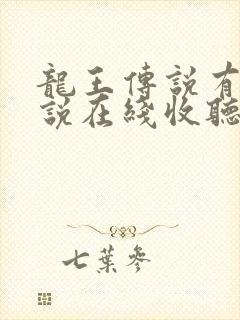 龍王傳説有
説在綫收聽
七葉參